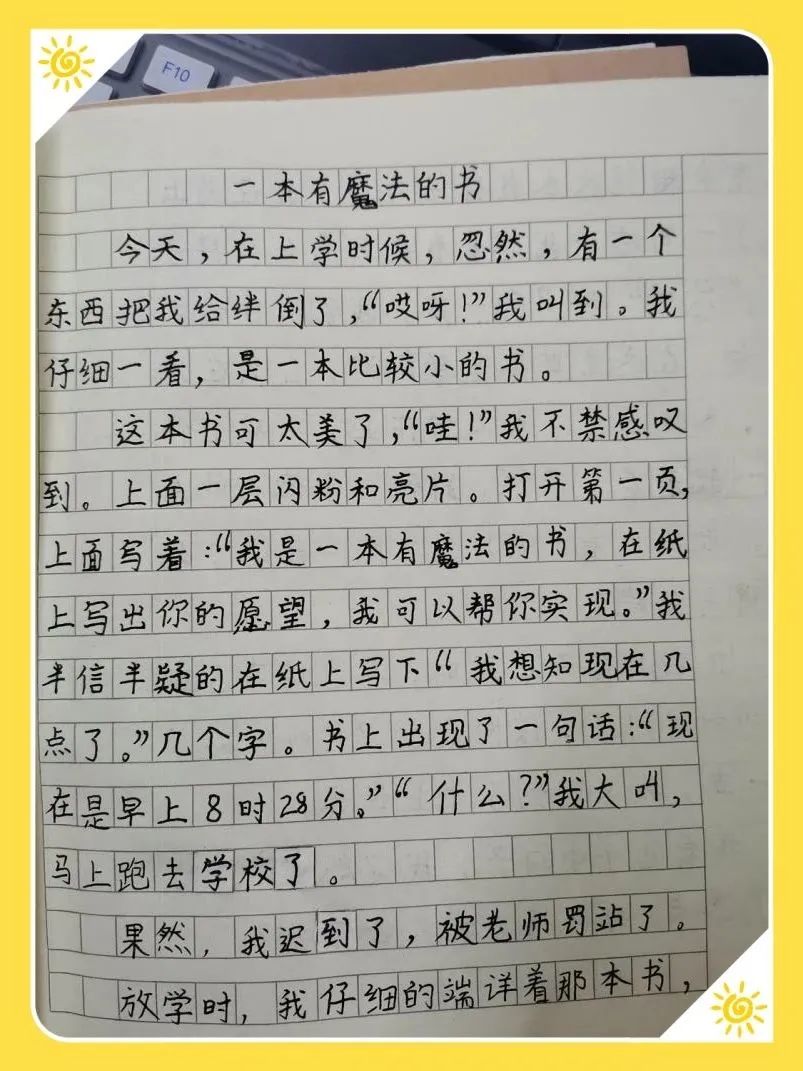 F10
一本有魔法的书
今天，在上学时候，忽然，有一个
东西把我给绊倒了，“哎呀！”我叫到。我
仔细一看，是一本比较小的书。
这本书可太美了，“哇！”我不禁感叹
到。上面一层闪粉和亮片。打开第一页，
上面写着：“我是一本有魔法的书，在纸
上写出你的愿望，我可以帮你实现。”我
半信半疑的在纸上写下“我想知现在几
点了。”几个字。书上出现了一句话：“现
在是早上8时28分。”“什么？”我大叫，
马上跑去学校了。
果然，我迟到了，被老师罚站了。
放学时，我仔细的端详着那本书，